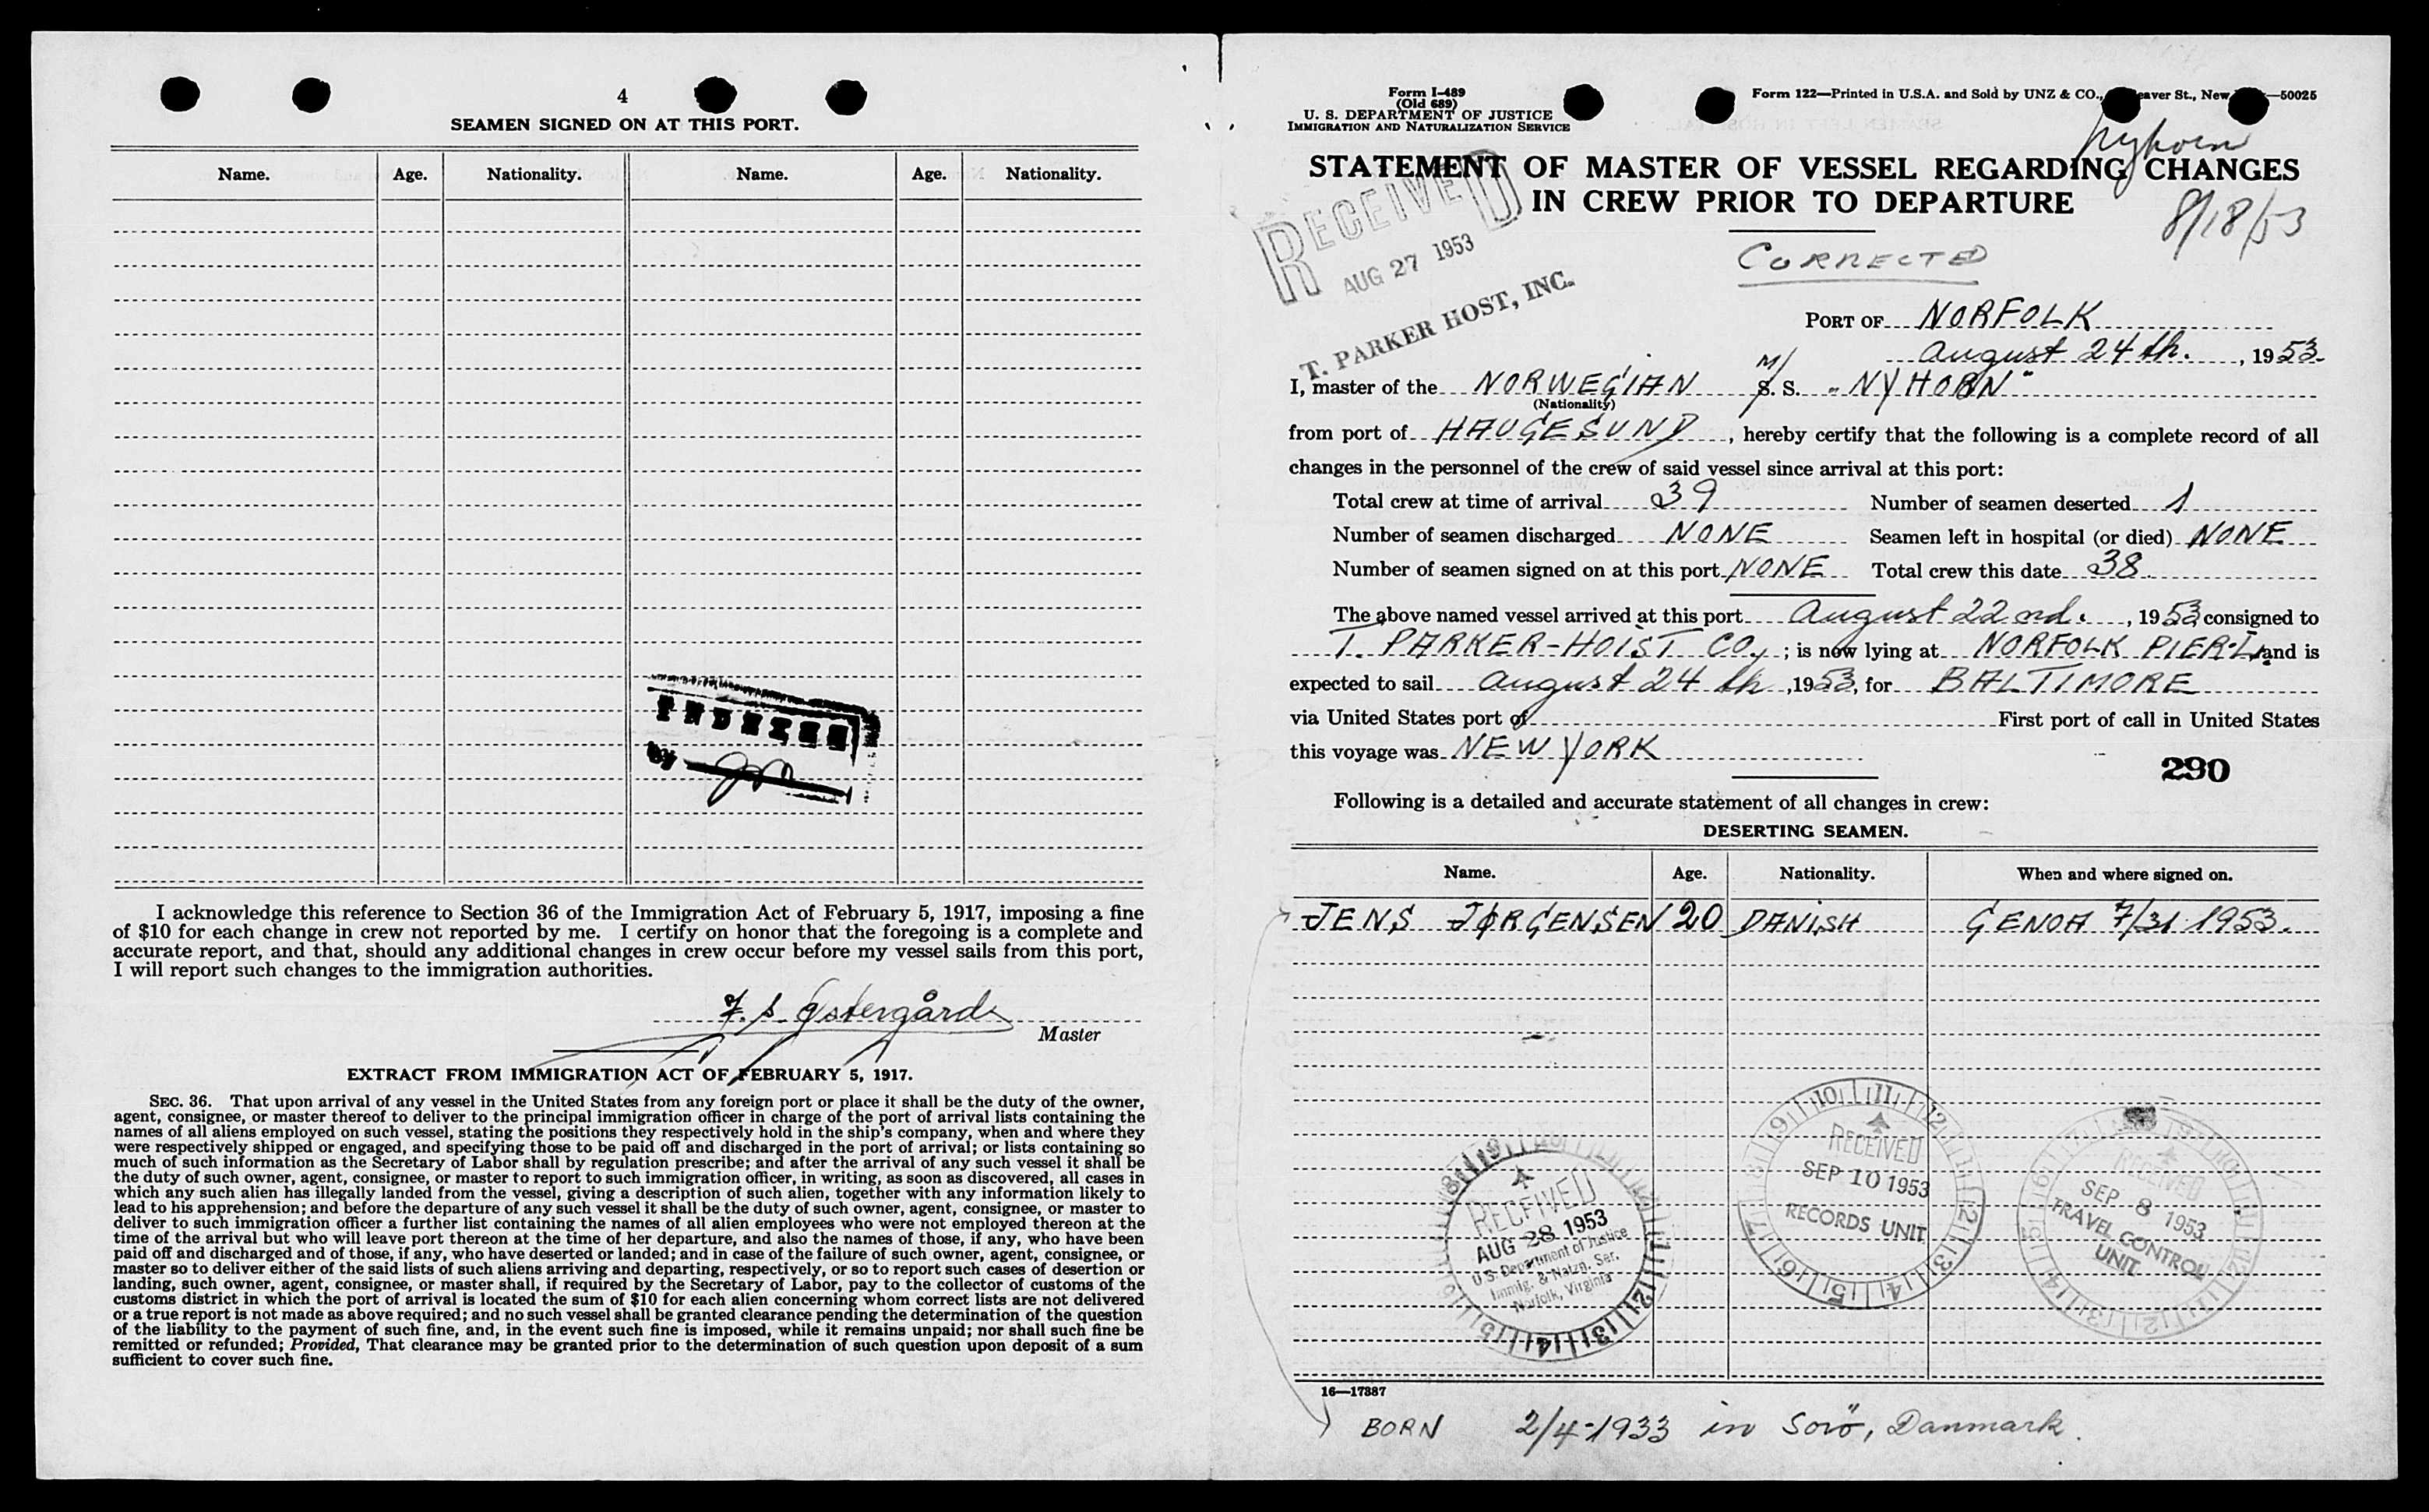 4
SEAMEN SIGNED ON AT THIS PORT.
Name. Age. Nationality. Name. Age. Nationality.
INDEXED
By
I acknowledge this reference to Section 36 of the Immigration Act of February 5, 1917, imposing a fine
of $10 for each change in crew not reported by me. I certify on honor that the foregoing is a complete and
accurate report, and that, should any additional changes in crew occur before my vessel sails from this port,
I will report such changes to the immigration authorities.
F. S. Østergård
Master
EXTRACT FROM IMMIGRATION ACT OF FEBRUARY 5, 1917.
SEC. 36. That upon arrival of any vessel in the United States from any foreign port or place it shall be the duty of the owner,
agent, consignee, or master thereof to deliver to the principal immigration officer in charge of the port of arrival lists containing the
names of all aliens employed on such vessel, stating the positions they respectively hold in the ship's company, when and where they
were respectively shipped or engaged, and specifying those to be paid off and discharged in the port of arrival; or lists containing so
much of such information as the Secretary of Labor shall by regulation prescribe; and after the arrival of any such vessel it shall be
the duty of such owner, agent, consignee, or master to report to such immigration officer, in writing, as soon as discovered, all cases in
which any such alien has illegally landed from the vessel, giving a description of such alien, together with any information likely to
lead to his apprehension; and before the departure of any such vessel it shall be the duty of such owner, agent, consignee, or master to
deliver to such immigration officer a further list containing the names of all alien employees who were not employed thereon at the
time of the arrival but who will leave port thereon at the time of her departure, and also the names of those, if any, who have been
paid off and discharged and of those, if any, who have deserted or landed; and in case of the failure of such owner, agent, consignee, or
master so to deliver either of the said lists of such aliens arriving and departing, respectively, or so to report such cases of desertion or
landing, such owner, agent, consignee, or master shall, if required by the Secretary of Labor, pay to the collector of customs of the
customs district in which the port of arrival is located the sum of $10 for each alien concerning whom correct lists are not delivered
or a true report is not made as above required; and no such vessel shall be granted clearance pending the determination of the question
of the liability to the payment of such fine, and, in the event such fine is imposed, while it remains unpaid; nor shall such fine be
remitted or refunded; Provided, That clearance may be granted prior to the determination of such question upon deposit of a sum
sufficient to cover such fine.
Form I-489
(Old 689)
U. S. DEPARTMENT OF JUSTICE
IMMIGRATION AND NATURALIZATION SERVICE
Form 122—Printed in U.S.A. and Sold by UNZ & CO., eaver St., New —50025
Nyhorn
STATEMENT OF MASTER OF VESSEL REGARDING CHANGES
IN CREW PRIOR TO DEPARTURE
8/18/53
RECEIVED
AUG 27 1953
T. PARKER HOST, INC.
CORRECTED
PORT OF NORFOLK
August 24 th. , 1953.
I, master of the NORWEGIAN M/S. S. "NYHORN"
(Nationality)
from port of HAUGESUND , hereby certify that the following is a complete record of all
changes in the personnel of the crew of said vessel since arrival at this port:
Total crew at time of arrival 39 Number of seamen deserted 1
Number of seamen discharged NONE Seamen left in hospital (or died) NONE
Number of seamen signed on at this port NONE Total crew this date 38
The above named vessel arrived at this port August 22 nd. , 1953 consigned to
T. PARKER-HOIST CO., ; is now lying at NORFOLK PIER-L, and is
expected to sail August 24 th ,1953, for BALTIMORE
via United States port of First port of call in United States
this voyage was NEW YORK
290
Following is a detailed and accurate statement of all changes in crew:
DESERTING SEAMEN.
Name. Age. Nationality. When and where signed on.
JENS JØRGENSEN 20 DANISH GENOA 7/31 1953.
RECEIVED
AUG 28 1953
U.S. Department of Justice
Immig. & Natzn. Ser.
Norfolk, Virginia
RECEIVED
SEP 10 1953
RECORDS UNIT
RECEIVED
SEP 8 1953
TRAVEL CONTROL
UNIT
16—17887
BORN 2/4-1933 in Sorö, Danmark.